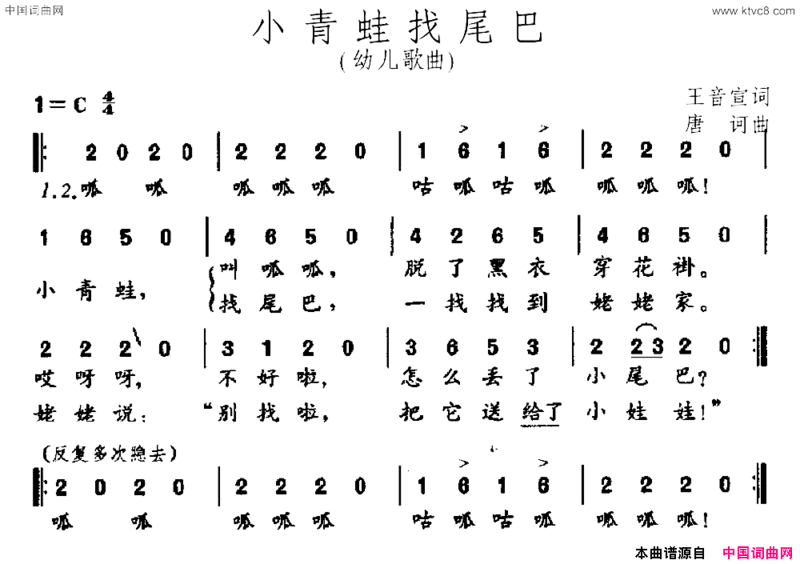 中国词曲网
www.ktvc8.com
小青蛙找尾巴
(幼儿歌曲)
1=C 4/4
王音宣词
唐 诃曲
‖: 2 0 2 0 | 2 2 2 0 | 1 6 1 6 | 2 2 2 0 |
1.2.呱 呱 呱呱呱 咕呱咕呱 呱呱呱!
1 6 5 0 | 4 6 5 0 | 4 2 6 5 | 4 6 5 0 |
小青蛙, 叫呱呱, 脱了黑衣 穿花褂。
找尾巴, 一找找到 姥姥家。
2 2 2 0 | 3 1 2 0 | 3 6 5 3 | 2 2 3 2 0 :‖
哎呀呀, 不好啦, 怎么丢了 小尾巴?
姥姥说: “别找啦, 把它送给了 小娃娃!”
(反复多次隐去)
‖: 2 0 2 0 | 2 2 2 0 | 1 6 1 6 | 2 2 2 0 :‖
呱 呱 呱呱呱 咕呱咕呱 呱呱呱!
本曲谱源自 中国词曲网